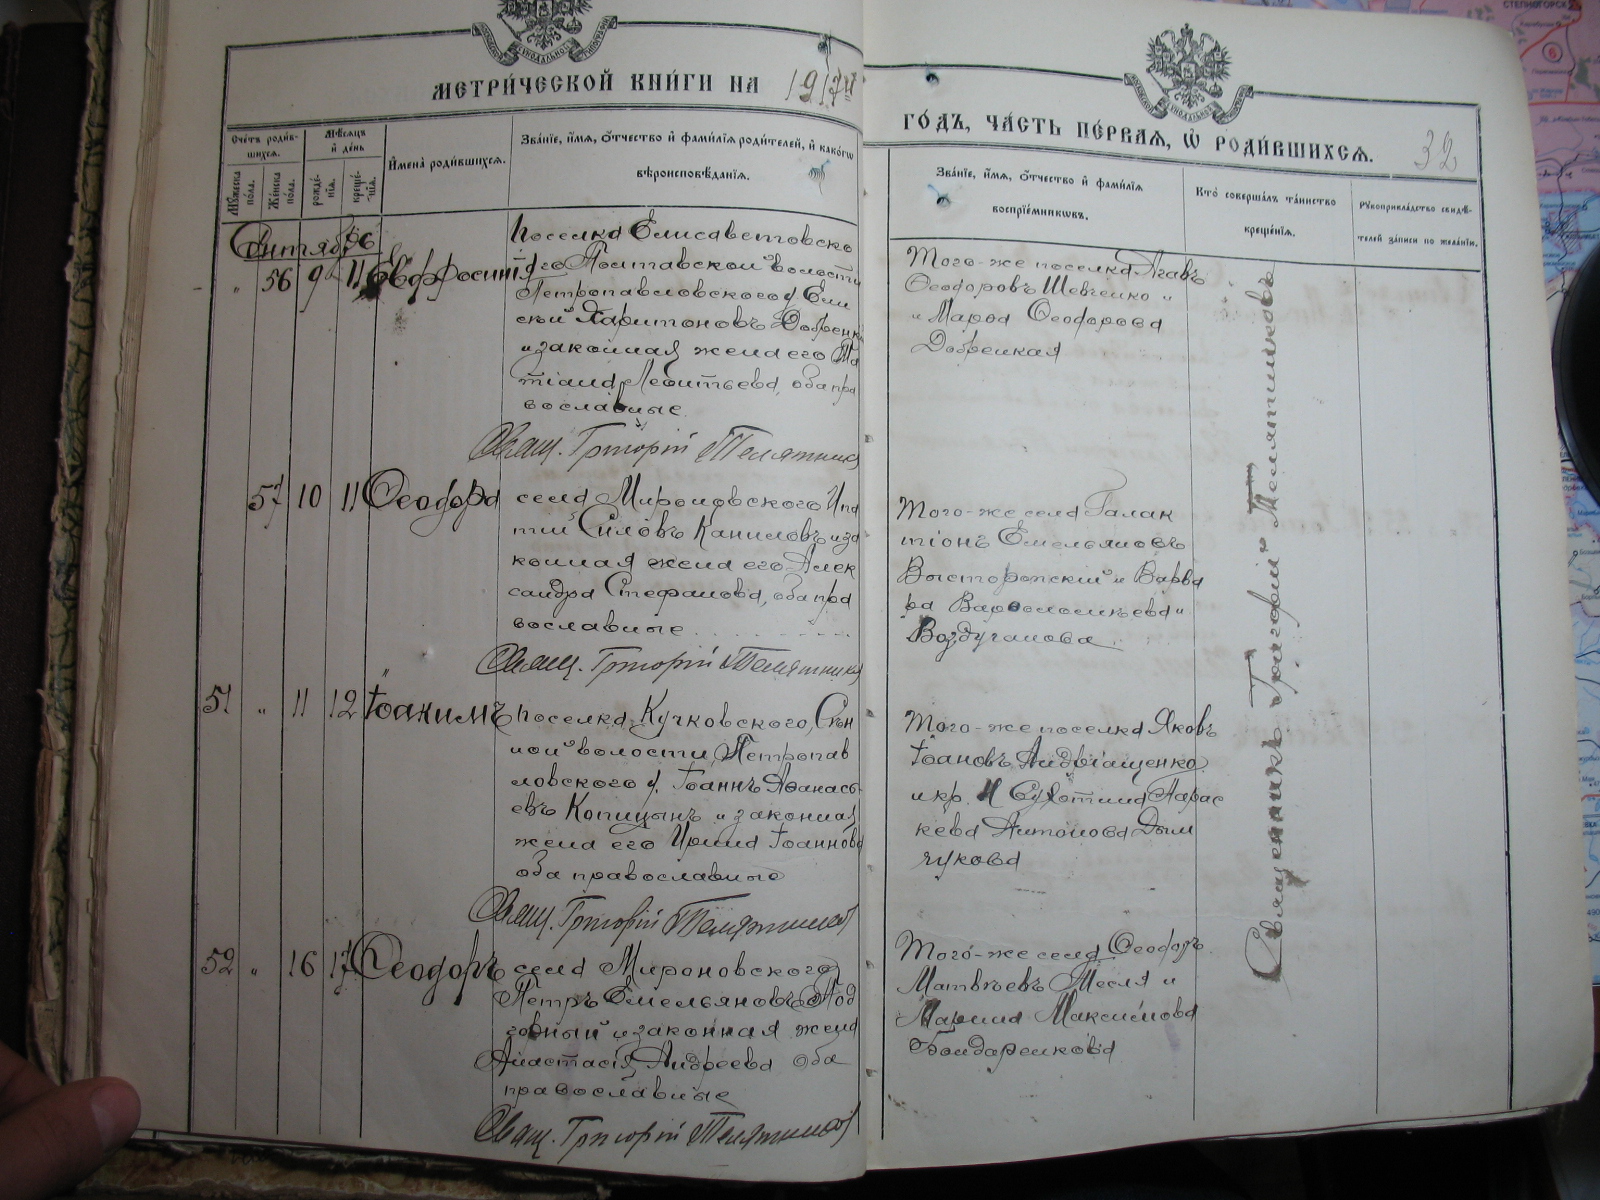 МЕТРИ́ЧЕСКОЙ КНИ́ГИ НА 1917й
ГО́ДЪ, ЧА́СТЬ ПЕ́РВАЯ, Ѽ РОДИ́ВШИХСЯ.
32
Сче́тъ роди́в-
шихся.
Му́жеска по́ла.
Же́нска по́ла.
Мѣ́сяцъ
и҆ де́нь
рожде́-
нїя.
креще́-
нїя.
И҆мена̀ роди́вшихся.
Зва́нїе, и҆́мя, ѻ҆́тчество и҆ фами́лїя роди́телей, и҆ како́гѡ
вѣроисповѣ́данїя.
Зва́нїе, и҆́мя, ѻ҆́тчество и҆ фами́лїя
воспрїе́мникѡвъ.
Кто̀ соверша́лъ та́инство
креще́нїя.
Рꙋкоприкла́дство свидѣ́-
телей за́писи по жела́нїю.
" 56 9 11 Евфросинія
поселка Елисаветовско
го Полтавской волости
Петропавловского у. Ели
сей Харитоновъ
и законная жена его Та
тіана Леонтьева, оба пра
вославные.
Свящ. Григорій Телятников
Того-же поселка
Ѳеодоровъ Шевченко и
Ѳеодорова
Добрецкая
57 10 11 Ѳеодора
села Мироновского Ипа
тий Силовъ Каниловъ и за
конная жена его Алек
сандра Стефанова, оба пра
вославные
Свящ. Григорій Телятников
Того-же села Галак
тіонъ Емельяновъ
и Варва
ра Варѳоломѣева
51 " 11 12 Іоакимъ
поселка Кучковского,
ной волости Петропав
ловского у. Іоаннъ Аѳанась
евъ Копицынъ и законная
жена его Ирина Іоаннова
оба православные
Свящ. Григорій Телятников
Того-же поселка Яковъ
Іоановъ
и кр. Парас
кева Антонова Дым
чукова
52 " 16 17 Ѳеодоръ
села Мироновского
Петръ Емельяновъ Под
и законная жена
Анастасія Андреева оба
православные
Свящ. Григорій Телятников
Того-же села Ѳеодоръ
Матвѣевъ Тесля и
Марина Максимова
Бондаренкова
Священникъ Григорий Телятниковъ